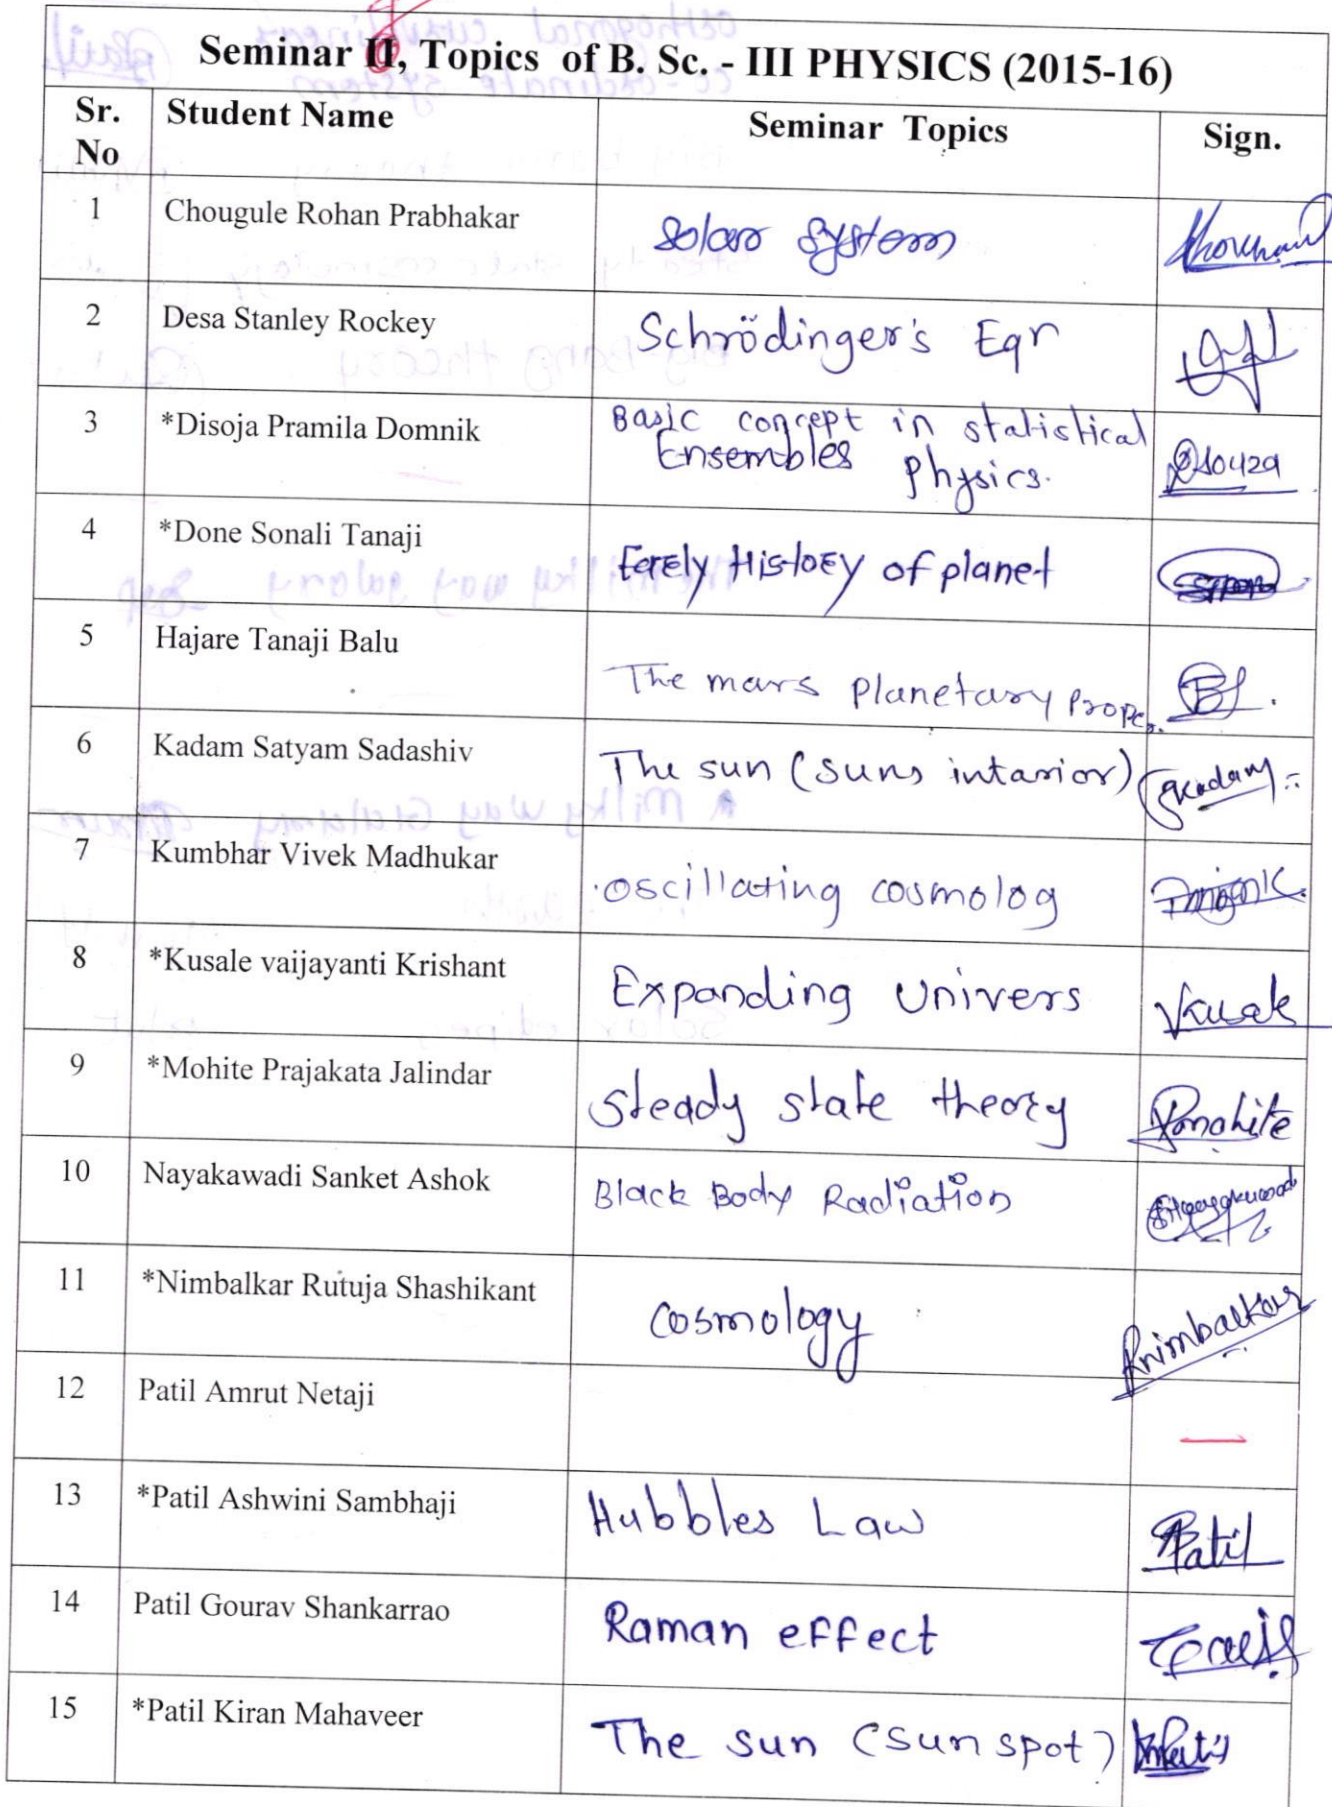 Seminar II, Topics of B. Sc. - III PHYSICS (2015-16)
Sr. No Student Name Seminar Topics Sign.
1 Chougule Rohan Prabhakar Solar System
2 Desa Stanley Rockey Schrödinger's Eqn
3 *Disoja Pramila Domnik Basic concept in statistical
Ensembles Physics. Dsouza
4 *Done Sonali Tanaji History of planet
5 Hajare Tanaji Balu The mars Planetary Prope.
6 Kadam Satyam Sadashiv The sun (suns intarior) Skadam
7 Kumbhar Vivek Madhukar oscillating cosmolog
8 *Kusale vaijayanti Krishant Expanding Univers VKusale
9 *Mohite Prajakata Jalindar Steady state theory Pmohite
10 Nayakawadi Sanket Ashok Black Body Radiation
11 *Nimbalkar Rutuja Shashikant Cosmology Rnimbalkar
12 Patil Amrut Netaji
13 *Patil Ashwini Sambhaji Hubbles Law APatil
14 Patil Gourav Shankarrao Raman effect
15 *Patil Kiran Mahaveer The sun (sun spot)